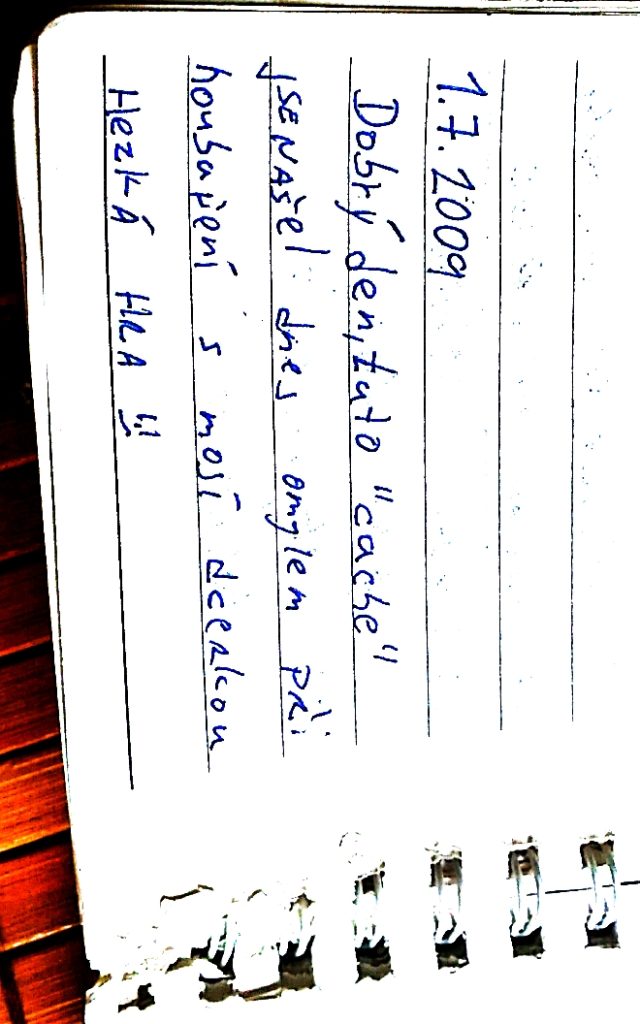 1.7.2009
Dobrý den, tuto "cache"
jsE NAšel dnes omylem při
houbaření s mojí dcerkou
HEZKÁ HRA !!